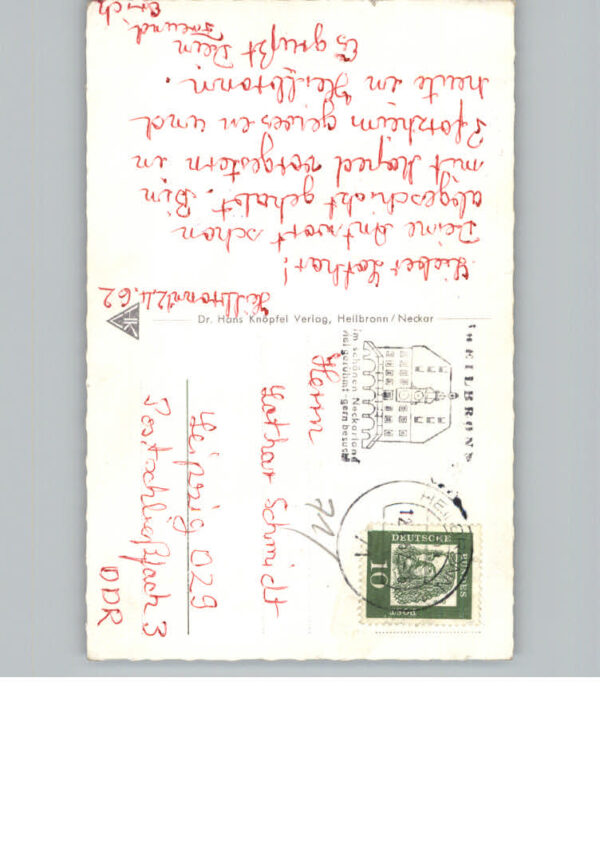 Heilbronn 12.4.62
Lieber Lothar!
Deine Antwort schon
abgeschickt gehabt. Bin
mit Moped vorgestern in
Pforzheim gewesen und
heute in Heilbronn.
Es grüßt Dein
Freund
Erich
HK
Dr. Hans Knöpfel Verlag, Heilbronn/Neckar
HEILBRONN
im schönen Neckarland
vielgerühmt-gern besucht
HEILB
12.
DEUTSCHE
BUNDES
POST
10
71/
Herrn
Lothar Schmidt
Leipzig O29
Postschließfach 3
DDR